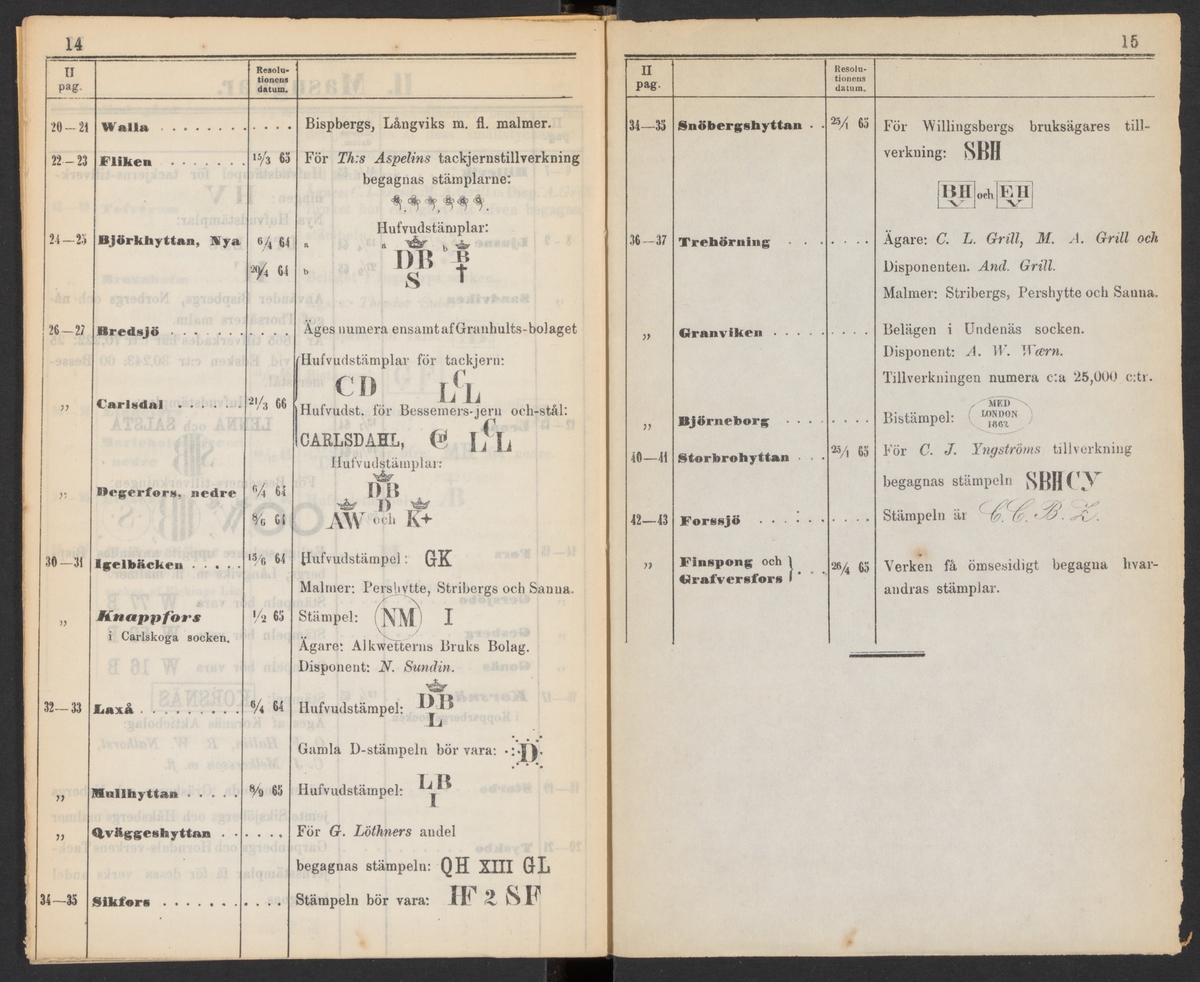 14
II pag.
Resolu-
tionens
datum.
20—21 Walla . . . . . . . . . . . . Bispbergs, Långviks m. fl. malmer.
22—23 Fliken . . . . . . . 15/3 65 För Th:s Aspelins tackjernstillverkning
begagnas stämplarne:
Hufvudstämplar:
24—25 Björkhyttan, Nya 6/4 64 a a DB S b B
20/4 64 b
26—27 Bredsjö . . . . . . . . . . . Äges numera ensamt af Granhults-bolaget
Hufvudstämplar för tackjern:
CD LCL
„ Carlsdal . . . . . 21/3 66
Hufvudst. för Bessemers-jern och-stål:
CARLSDAHL, CD LCL
Hufvudstämplar:
„ Degerfors, nedre 6/4 64 DB D
8/6 64 AW och K+
30—31 Igelbäcken . . . . . 15/6 64 Hufvudstämpel: GK
Malmer: Pershytte, Stribergs och Sanna.
„ Knappfors 1/2 65 Stämpel: NM I
i Carlskoga socken.
Ägare: Alkwetterns Bruks Bolag.
Disponent: N. Sundin.
32—33 Laxå . . . . . . . . . 6/4 64 Hufvudstämpel: DB L
Gamla D-stämpeln bör vara: D
„ Mullhyttan . . . . . 8/9 65 Hufvudstämpel: LB I
„ Qväggeshyttan . . . . . . För G. Löthners andel
begagnas stämpeln: QH XIII GL
34—35 Sikfors . . . . . . . . . . . Stämpeln bör vara: HF 2 SF
15
II pag.
Resolu-
tionens
datum.
34—35 Snöbergshyttan . . 25/1 65 För Willingsbergs bruksägares till-
verkning: SBH
BH V och EH V
36—37 Trehörning . . . . . . . . Ägare: C. L. Grill, M. A. Grill och
Disponenten. And. Grill.
Malmer: Stribergs, Pershytte och Sanna.
„ Granviken . . . . . . . . . Belägen i Undenäs socken.
Disponent: A. W. Wærn.
Tillverkningen numera c:a 25,000 c:tr.
„ Björneborg . . . . . . . . . Bistämpel: MED LONDON 1862
40—41 Storbrohyttan . . . 25/1 65 För C. J. Yngströms tillverkning
begagnas stämpeln SBH CY
42—43 Forssjö . . . . . . . . . . . Stämpeln är C. C. B. Z.
„ Finspong och
Grafversfors } . . . 26/4 65 Verken få ömsesidigt begagna hvar-
andras stämplar.